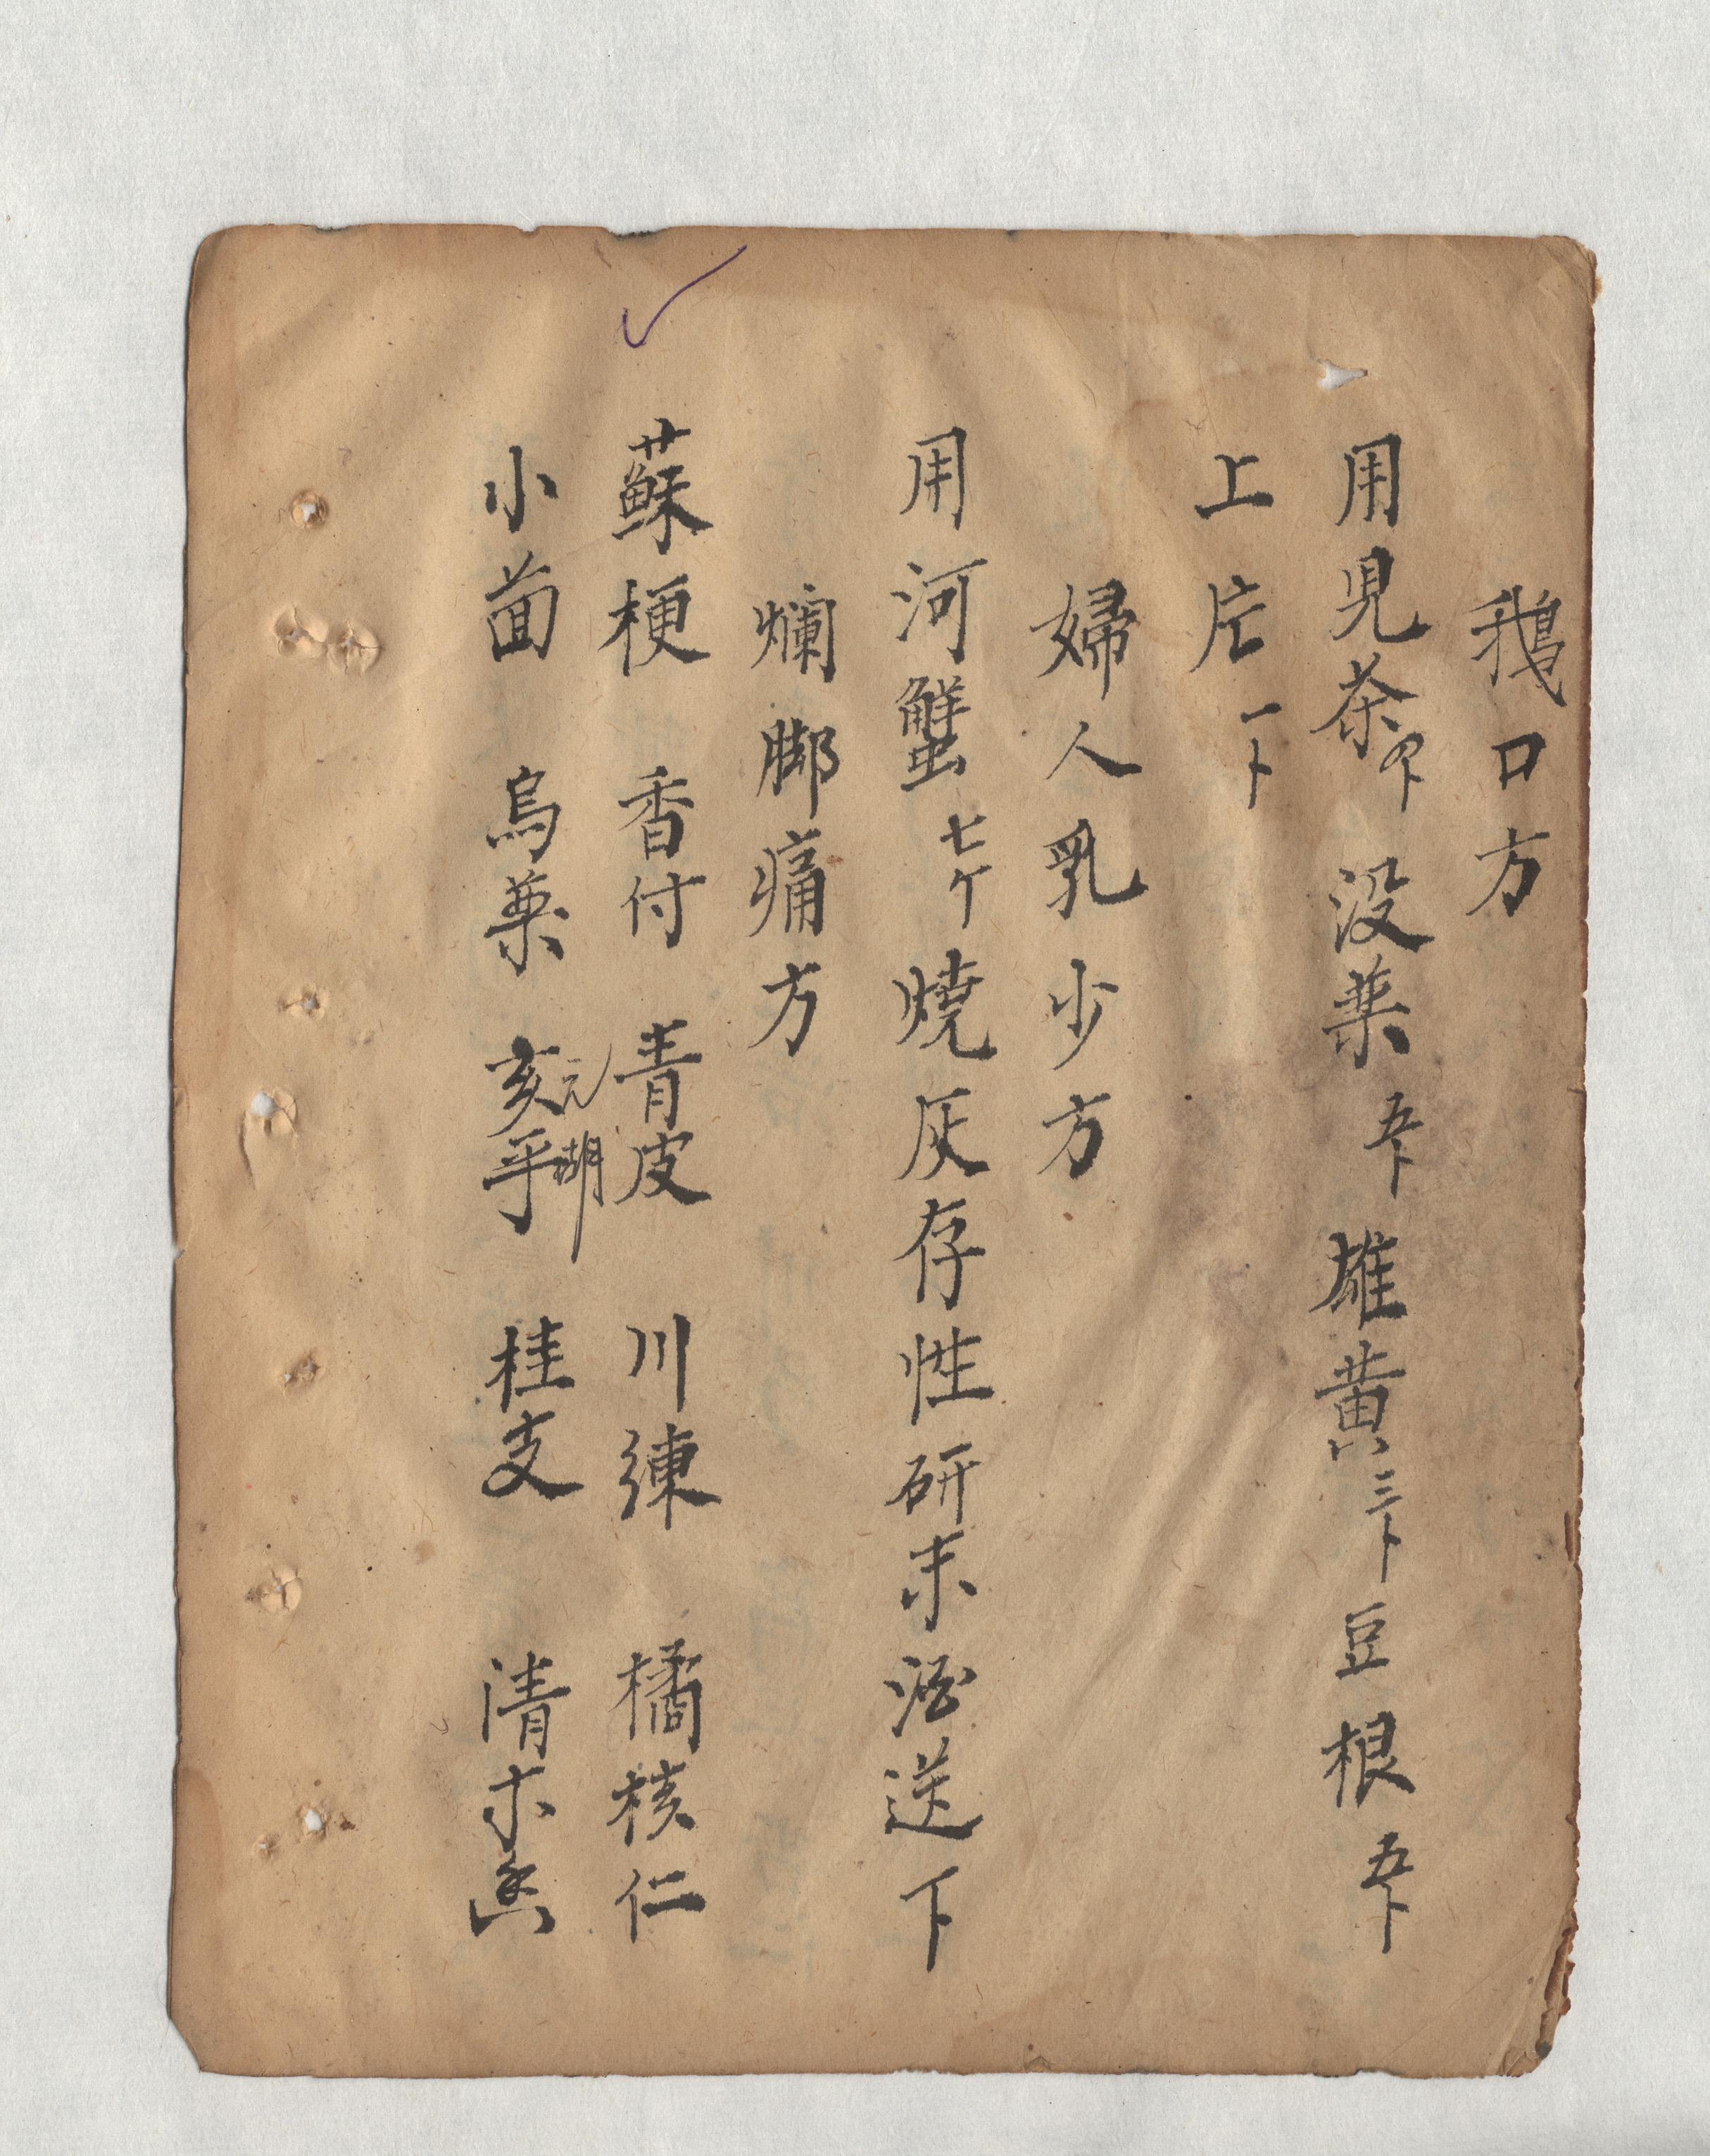 鵝口方
用児茶四卜 没薬五卜 雄黄三卜 豆根五卜
上片一卜
婦人乳少方
用河蟹七个燒灰存性研末酒送下
爛脚痛方
蘇梗 香付 青皮 川練 橘核仁
小茴 烏薬 亥乎 元胡 桂支 清木香